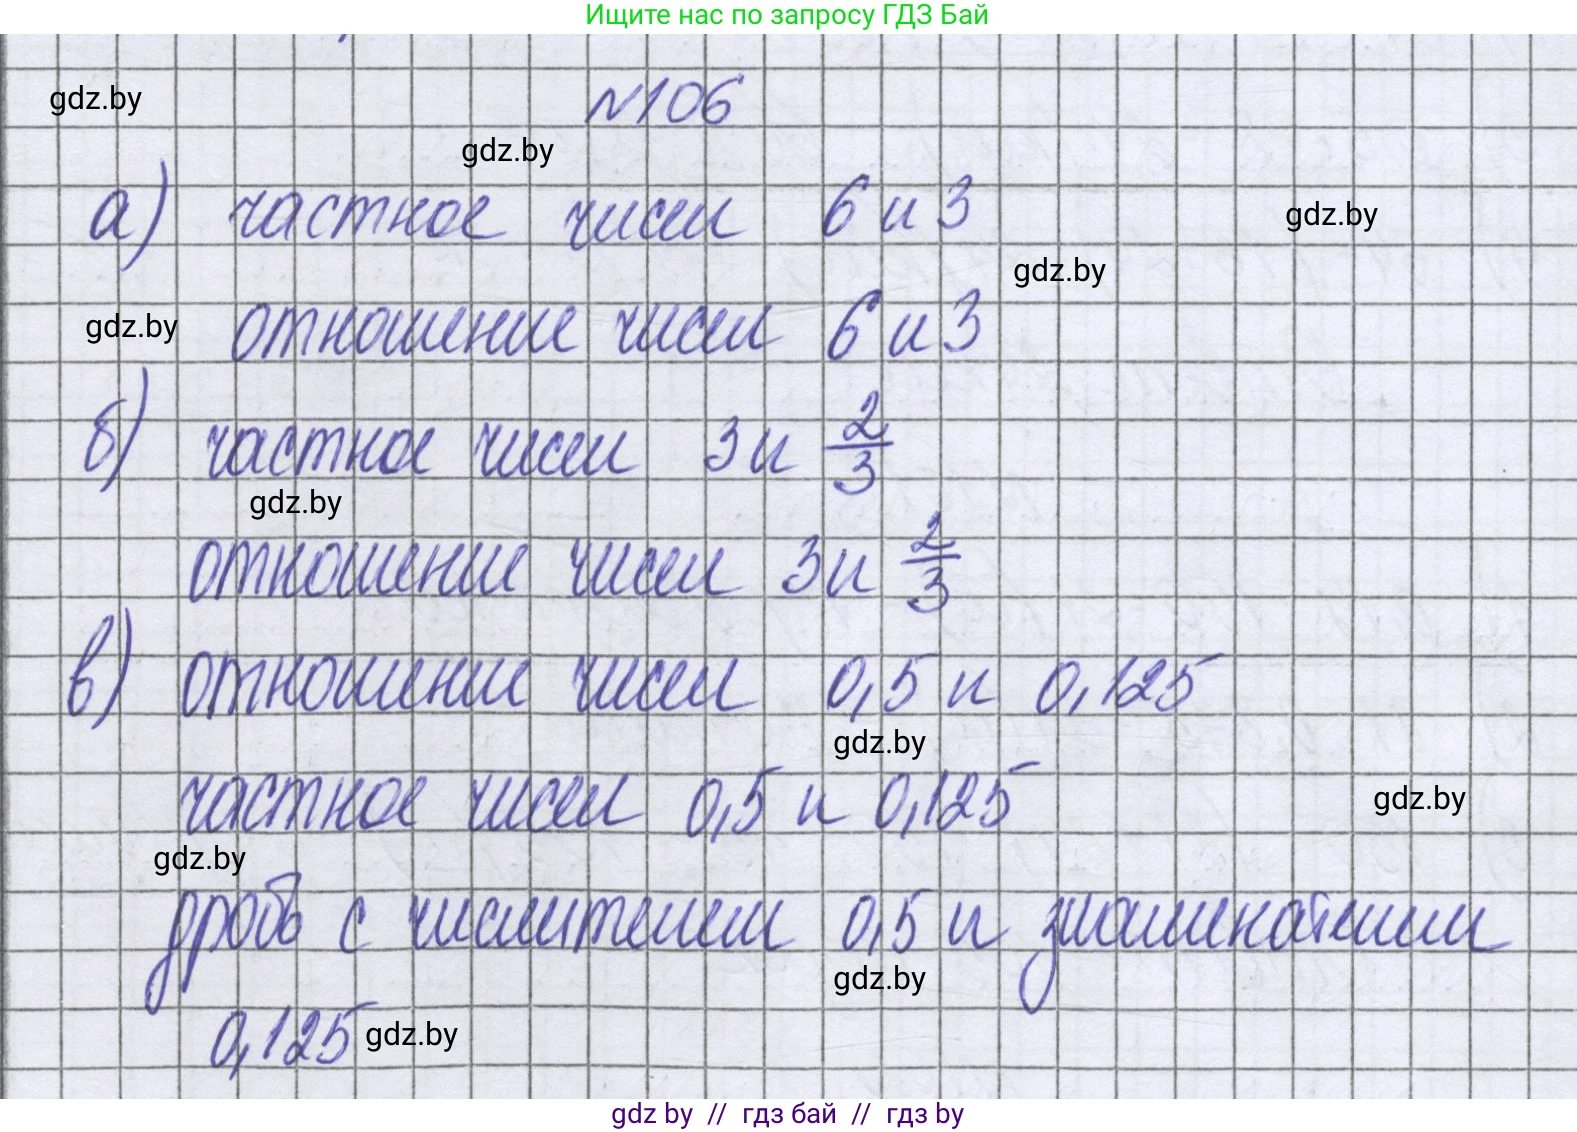 Ищите нас по запросу ГДЗ Бай
gdz.by
№106
gdz.by
а) частное чисел 6 и 3
gdz.by
gdz.by
gdz.by
отношение чисел 6 и 3
б) частное чисел 3 и 2/3
gdz.by
отношение чисел 3 и 2/3
в) отношение чисел 0,5 и 0,125
gdz.by
частное чисел 0,5 и 0,125
gdz.by
gdz.by
дробь с числителем 0,5 и знаменателем
gdz.by
0,125
gdz.by
gdz by // гдз бай // гдз by